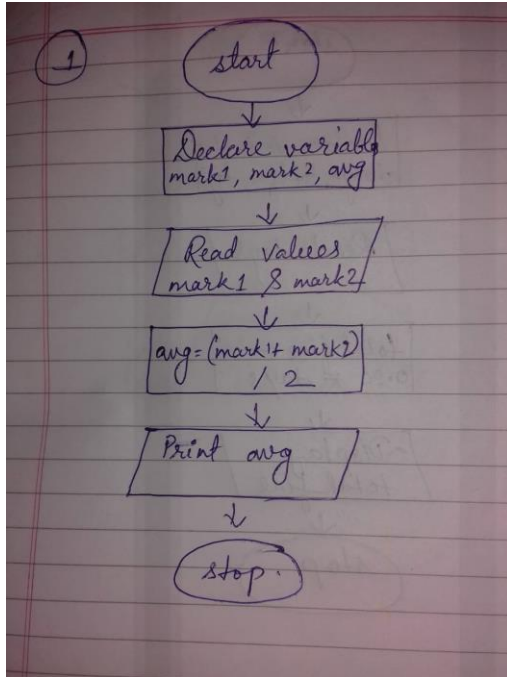 1
start
Declare variable
mark1, mark2, avg
Read values
mark1 & mark2
avg=(mark1+ mark2)
/ 2
Print avg
stop.